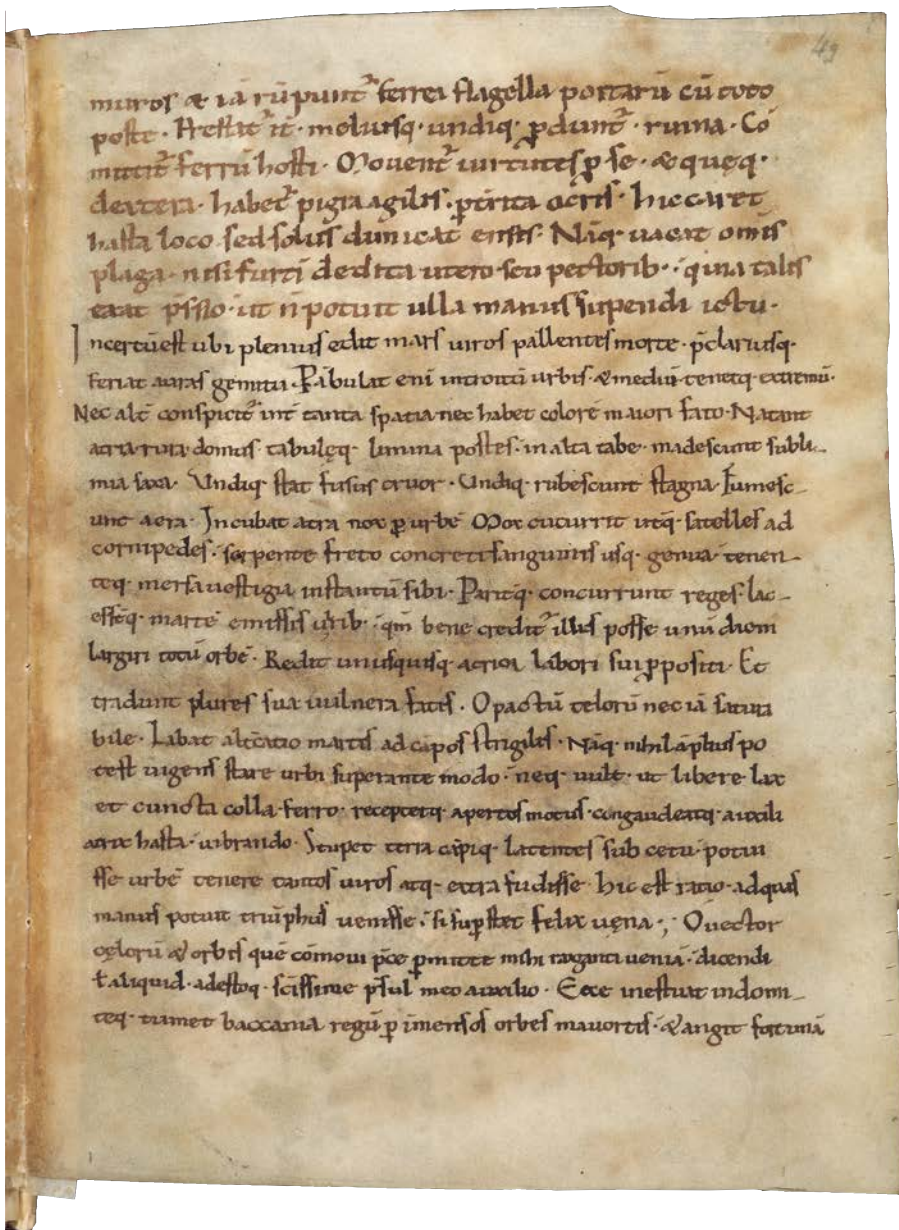 49
muros & iā rūpunt᷑ ferrei flagella portarū cū toto
poste · undiq· ꝓdunt᷑ · ruina · Cō
mittit᷑ ferrū hosti · Movent᷑ virtutes ꝑ se · & quęq·
dextera · habet᷑ pigra agilis · ocris · hic caret
hasta loco sed solus dimicat ensis · Nāq· vacat om̄is
plaga · nisi furti dedita utero seu pectorib· · quia talis
erat p̄ssio · ut n̄ potuit ulla manus supendi ictu ·
Incertū est ubi plenius edit mars viros pallentes morte · p̄clarusq·
feriat auras gemitu · introitū urbis · & mediū tenetq· extremū ·
Nec alt᷑ conspicit᷑ int᷑ tanta spatia nec habet colorē maiori fato · Natant
atria rura domus · tabulęq· limina postes · in alta tabe · madescunt subli-
mia saxa · Undiq· stat fusus cruor · Undiq· rubescunt stagna · Fumesc-
unt aera · Incubat atra nox ꝑ urbē Mox cucurrit utq̄· satelles ad
cornipedes · serpente freto concreti sanguinis usq· genua · tenen-
teq· mersa vestigia instantū sibi · Pariteq· concurrunt reges · lac-
esseq· martē emissis · qm̄ bene credit᷑ illis posse unū diem
largiri totū orbē · Redit unusquisq· acrior labori sui ꝓpositi · Et
tradunt plures sua vulnera fatis · O pactū telorū nec iā satura
bile · Labat alt᷑catio martis ad cāpos strigilis · Nāq· nihil āplius po
test vigens stare urbi superante modo · neq· vult · ut libere lax
et cuncta colla ferro · receptetq· apertos motus · congaudeatq· auxili
atrix hasta · vibrando · Stupet terra cāpiq· latentes sub cetu · potui
sse urbē tenere tantos viros atq· extra fudisse · hic est ratio · ad quas
manus potuit triūphus venisse · si supstet felix vęna ·; O vector
cęlorū & orbis quē cōmovi p̄ce ꝑmitte mihi roganti veniā · dicendi
ł aliquid · adestoq· sc̄issime p̄sul meo auxilio · Ecce inestuat indomi-
teq· tumet baccania regū ꝑ īmensos orbes mavortis · & angit fortunā